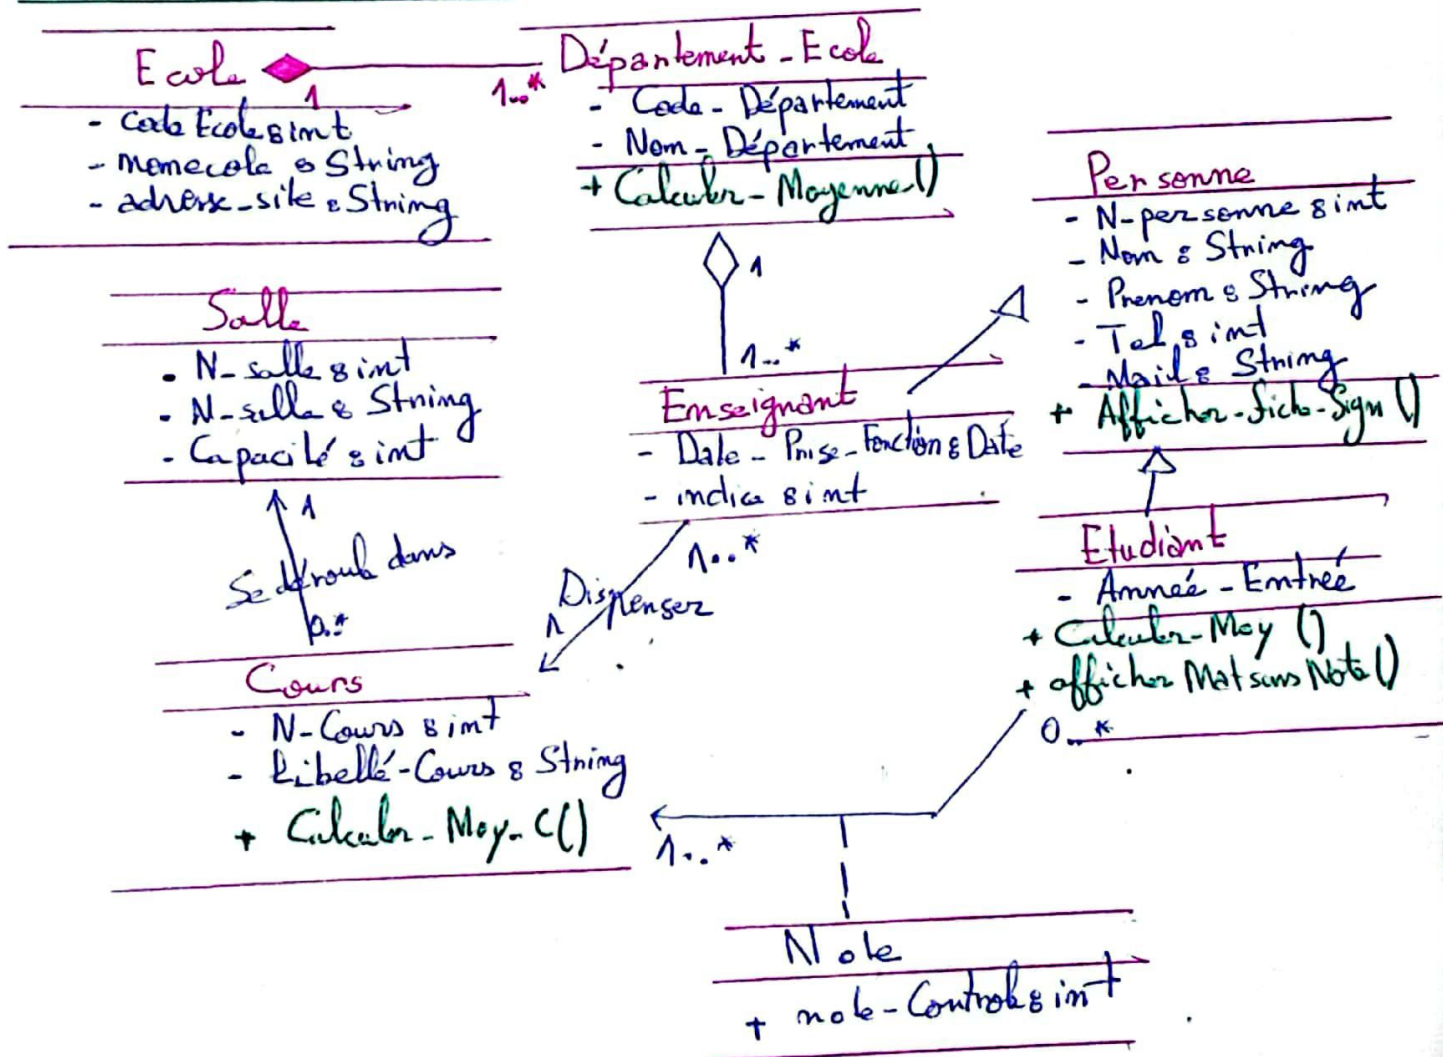 Ecole
1
1..*
- code Ecole : int
- nomecole : String
- adresse_site : String
Département - Ecole
- Code - Département
- Nom - Département
+ Calculer - Moyenne()
1
1..*
Personne
- N-personne : int
- Nom : String
- Prenom : String
- Tel : int
- Mail : String
+ Afficher-fiche-Sign()
Salle
- N-salle : int
- N-salle : String
- Capacité : int
1
Se déroule dans
0..*
Enseignant
- Date - Prise - Fonction : Date
- indice : int
1..*
Dispenser
1
Etudiant
- Année - Entreé
+ Calculer-Moy ()
+ afficher Mat sans Note()
0..*
Cours
- N-Cours : int
- Libellé-Cours : String
+ Calculer - Moy - C()
1..*
Note
+ note-Controle : int